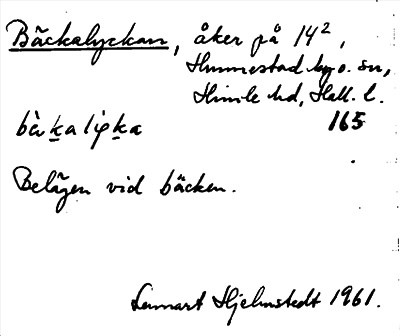 Bäckalyckan, åker på 14²,
Hunnestad by o. sn,
Himle hd, Hall. l.
165
Belägen vid bäcken.
Lennart Hjelmstedt 1961.